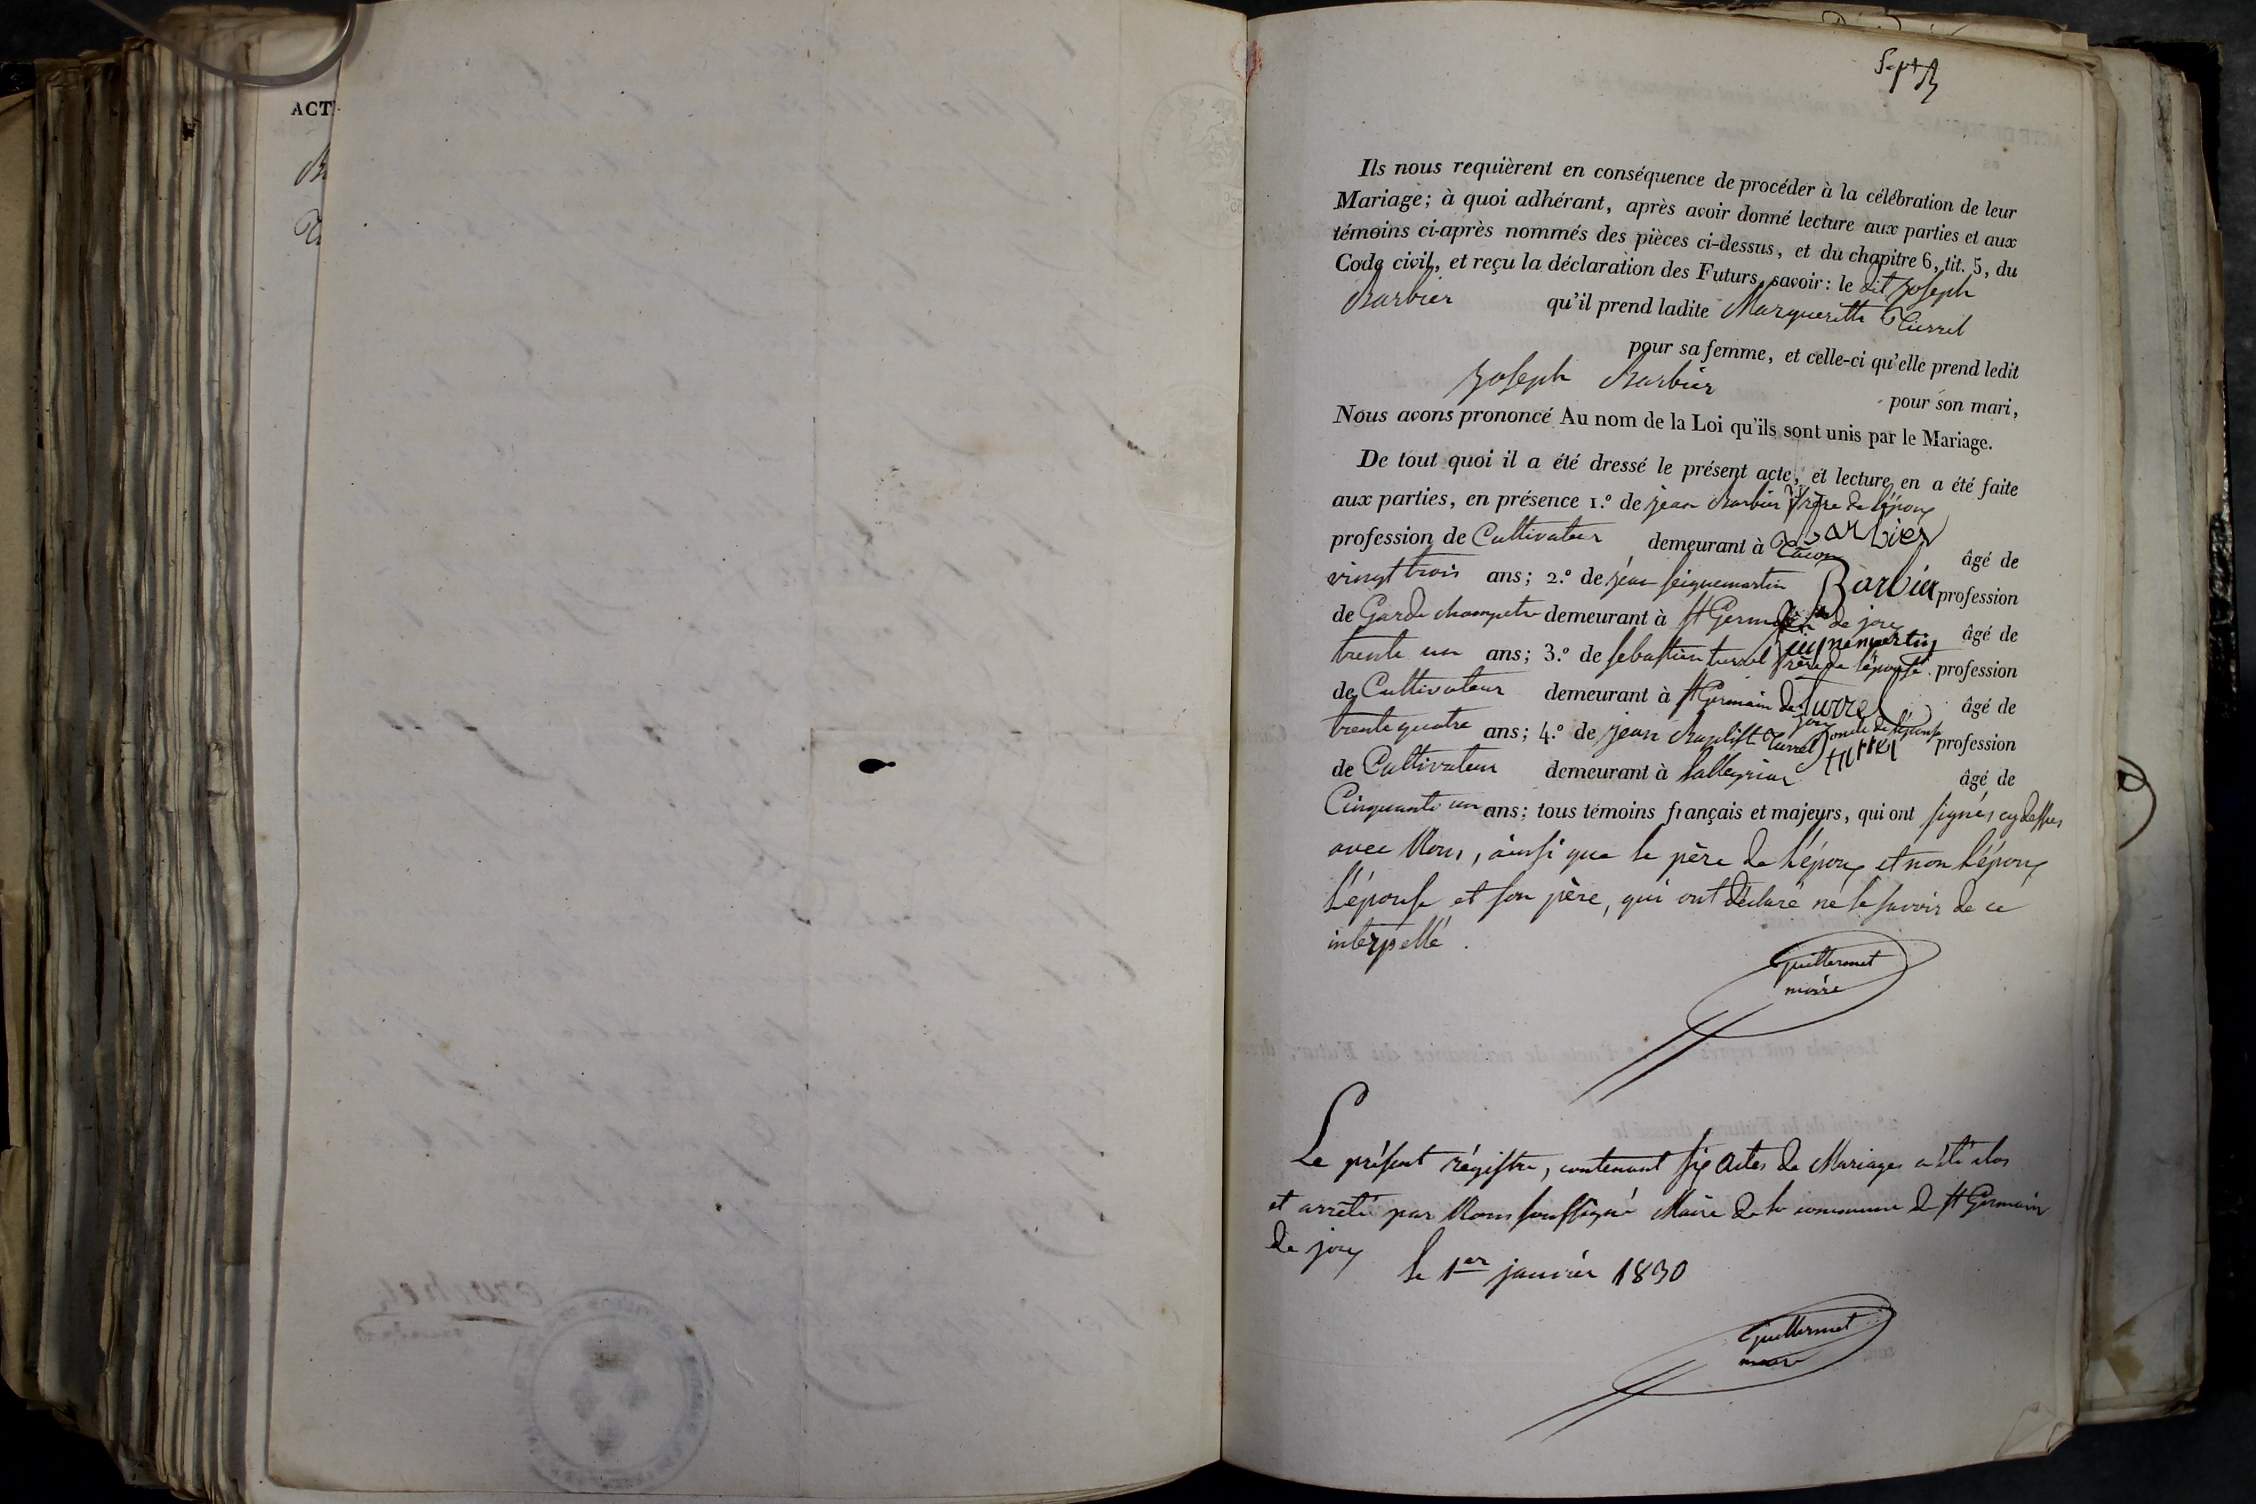 ACT
Sept
Ils nous requièrent en conséquence de procéder à la célébration de leur
Mariage; à quoi adhérant, après avoir donné lecture aux parties et aux
témoins ci-après nommés des pièces ci-dessus, et du chapitre 6, tit. 5, du
Code civil, et reçu la déclaration des Futurs, savoir: le dit Joseph
Barbier qu'il prend ladite Margueritte Turrel
pour sa femme, et celle-ci qu'elle prend ledit
Joseph Barbier pour son mari,
Nous avons prononcé Au nom de la Loi qu'ils sont unis par le Mariage.
De tout quoi il a été dressé le présent acte, et lecture en a été faite
aux parties, en présence 1.º de jean Barbier frère de l'époux
Barbier
profession de Cultivateur demeurant à Tacon âgé de
vingt trois ans; 2.º de jean seignemartin profession
Barbier
de Garde champetre demeurant à St Germain de joux âgé de
Seignemartin
trente un ans; 3.º de sebastien turrel frère de l'épouse profession
de Cultivateur demeurant à St Germain de joux âgé de
Turrel
trente quatre ans; 4.º de jean Baptiste Turrel oncle de l'épouse profession
turrel
de Cultivateur demeurant à balleyriat âgé de
Cinquante un ans; tous témoins français et majeurs, qui ont signés cy dessus
avec Nous, ainsi que le père de l'époux et non l'époux
l'épouse et son père, qui ont déclaré ne le savoir de ce
interpellé.
Guillermet
maire
Le présent régistre, contenant six actes de Mariages a été clos
et arrêté par Nous soussigné Maire de la commune de St Germain
de joux
le 1er janvier 1830
Guillermet
maire